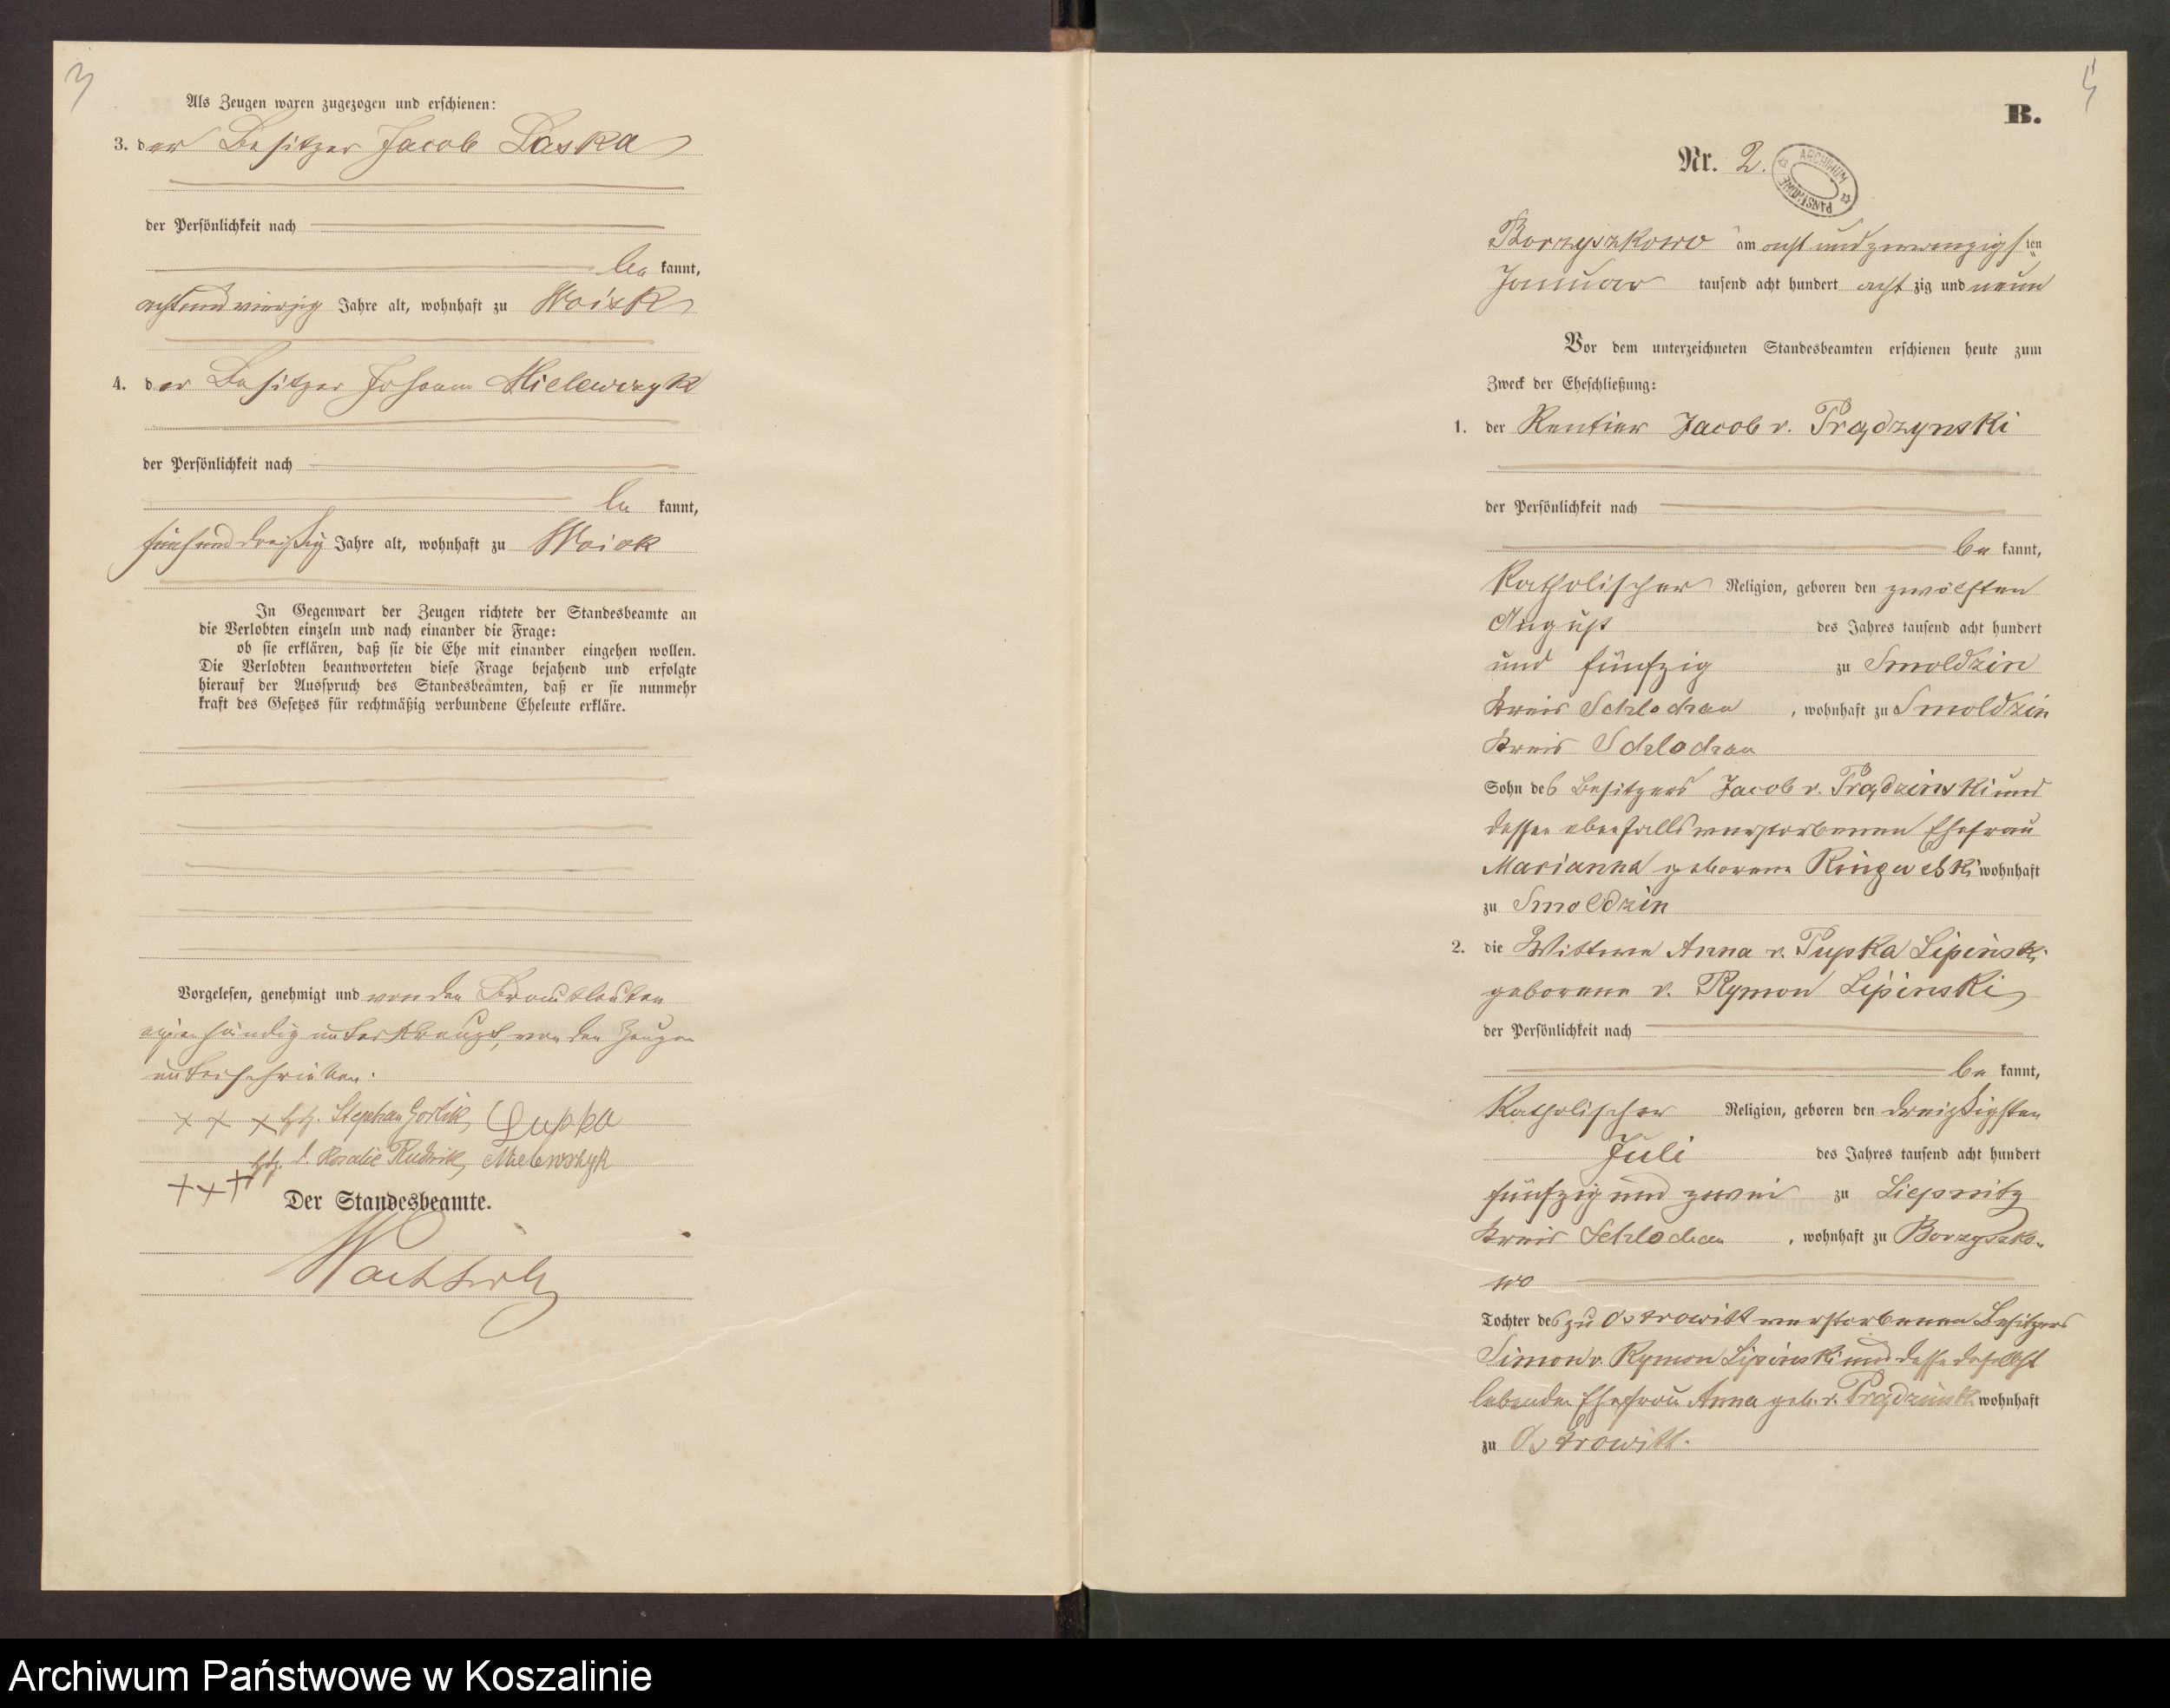 3
Als Zeugen waren zugezogen und erschienen:
3. der Besitzer Jacob Laska
der Persönlichkeit nach
be kannt,
achtundvierzig Jahre alt, wohnhaft zu Woisk
4. der Besitzer Johann Mielewczyk
der Persönlichkeit nach
be kannt,
fünfunddreißig Jahre alt, wohnhaft zu
In Gegenwart der Zeugen richtete der Standesbeamte an
die Verlobten einzeln und nach einander die Frage:
ob sie erklären, daß sie die Ehe mit einander eingehen wollen.
Die Verlobten beantworteten diese Frage bejahend und erfolgte
hierauf der Ausspruch des Standesbeamten, daß er sie nunmehr
kraft des Gesetzes für rechtmäßig verbundene Eheleute erkläre.
Vorgelesen, genehmigt und von den Brautleuten
eigenhändig unterkreuzt, von den Zeugen
unterschrieben.
+ + + Stephan Gorlik,
Rosalie Rudnik, Mielewczyk
+++
Der Standesbeamte.
B.
Nr. 2.
ARCHIWUM PAŃSTWOWE
Borzyszkowo am acht und zwanzigsten
Januar tausend acht hundert acht zig und neun
Vor dem unterzeichneten Standesbeamten erschienen heute zum
Zweck der Eheschließung:
1. der Rentier Jacob v. Prądzynski
der Persönlichkeit nach
be kannt,
Katholischer Religion, geboren den zwölften
August des Jahres tausend acht hundert
und fünfzig zu Smoldzin
Kreis Schlochau, wohnhaft zu Smoldzin
Kreis Schlochau
Sohn des Besitzers Jacob v. Prądzinski und
dessen ebenfalls verstorbenen Ehefrau
Marianna geborene wohnhaft
zu Smoldzin
2. die Wittwe Anna v. Pupka Lipinski
geborene v. Rymon Lipinski
der Persönlichkeit nach
be kannt,
Katholischer Religion, geboren den dreißigsten
Juli des Jahres tausend acht hundert
fünfzig und zwei zu Liepnitz
Kreis Schlochau, wohnhaft zu Borzyszko-
wo
Tochter des zu Ostrowitt verstorbenen Besitzers
Simon v. Rymon Lipinski und dessen daselbst
lebenden Ehefrau Anna geb. v. Prądzinski wohnhaft
zu Ostrowitt.
Archiwum Państwowe w Koszalinie